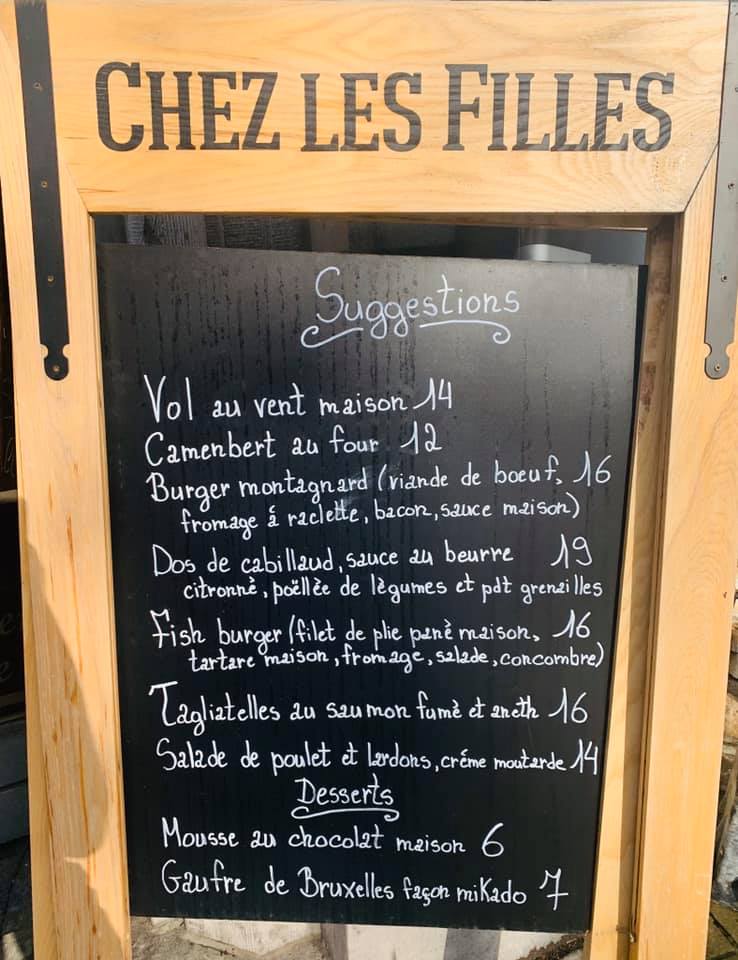 CHEZ LES FILLES
Suggestions
Vol au vent maison 14
Camenbert au four 12
Burger montagnard (viande de boeuf, 16
fromage á raclette, bacon, sauce maison)
Dos de cabillaud, sauce au beurre 19
citronnè, poëllèe de lègumes et pdt grenailles
Fish burger (filet de plie panè maison, 16
tartare maison, fromage, salade, concombre)
Tagliatelles au saumon fumè et aneth 16
Salade de poulet et lardons, créme moutarde 14
Desserts
Mousse au chocolat maison 6
Gaufre de Bruxelles façon mikado 7